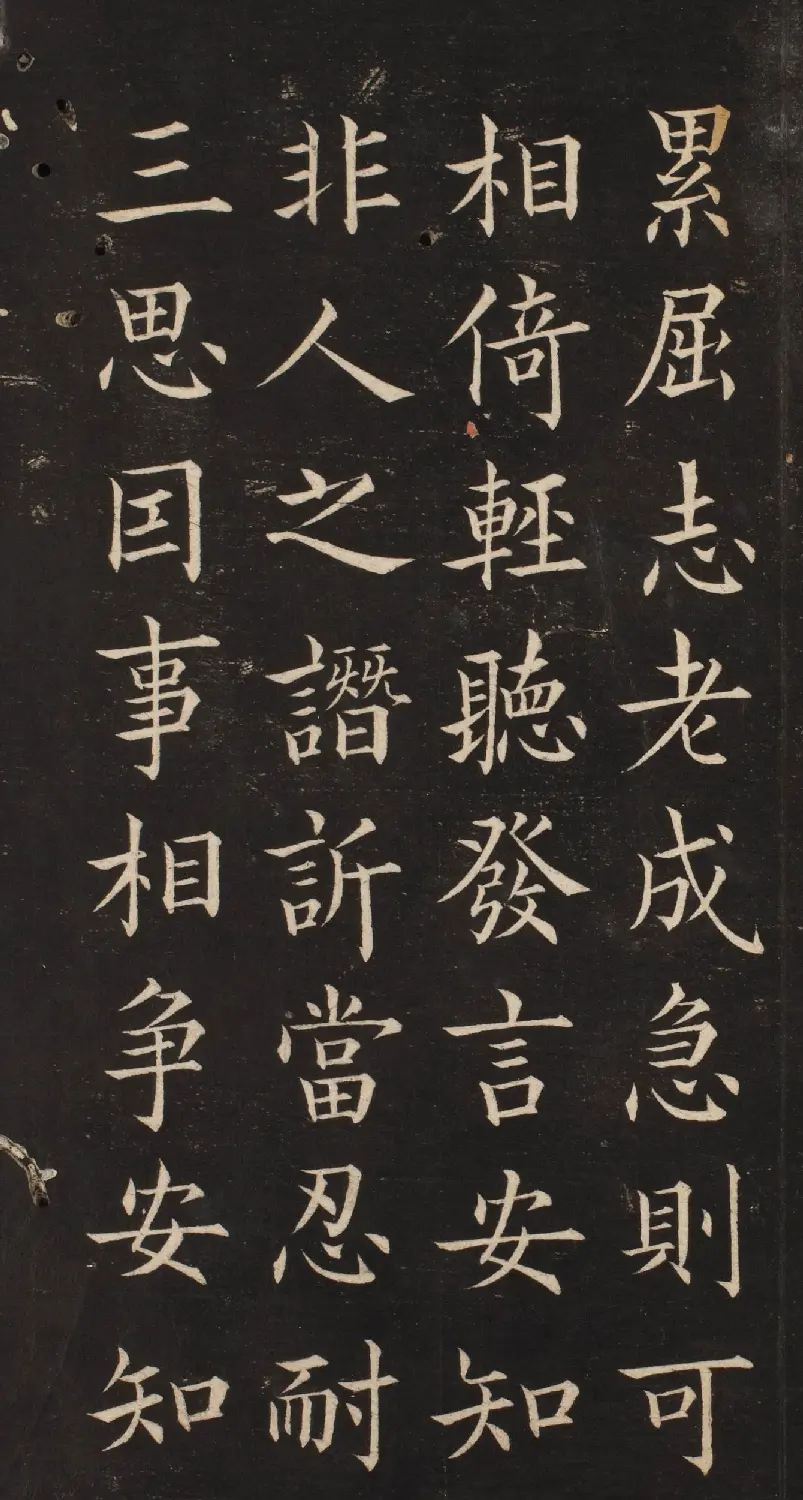 累屈志老成急則可
相倚輕聽發言安知
非人之譖訢當忍耐
三思囙事相争安知